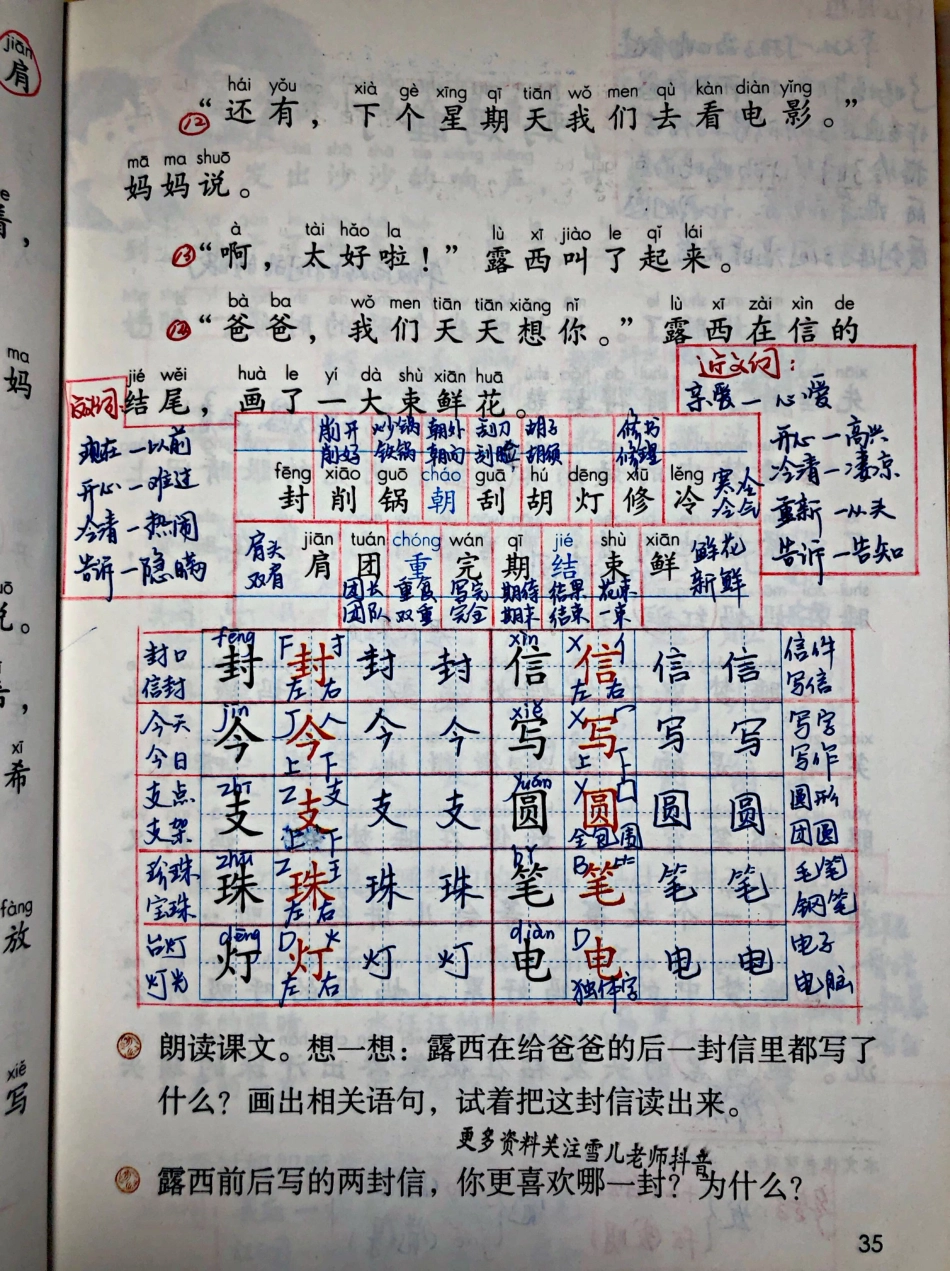 jiān
肩
hái yǒu xià gè xīng qī tiān wǒ men qù kàn diàn yǐng
⑫“还有，下个星期天我们去看电影。”
mā ma shuō
妈妈说。
à tài hǎo la lù xī jiào le qǐ lái
⑬“啊，太好啦！”露西叫了起来。
bà ba wǒ men tiān tiān xiǎng nǐ lù xī zài xìn de
⑭“爸爸，我们天天想你。”露西在信的
jié wěi huà le yí dà shù xiān huā
结尾，画了一大束鲜花。
反义词
现在—以前
开心—难过
冷清—热闹
告诉—隐瞒
近义词：
亲爱—心爱
开心—高兴
冷清—凄凉
重新—从头
告诉—告知
削开 炒锅 朝外 刮刀 胡子 修书
削好 铁锅 朝向 刮脸 胡须 修理
fēng xiāo guō cháo guā hú dēng xiū lěng
封 削 锅 朝 刮 胡 灯 修 冷
寒冷
冷气
jiān tuán chóng wán qī jié shù xiān
肩头 肩 团 重 完 期 结 束 鲜 鲜花
双肩 新鲜
团长 重复 写完 期待 结果 花束
团队 双重 完全 期末 结束 一束
fēng xìn
封口 封 F 封 寸 封 封 信 X 信 亻 信 信 信件
信封 左 右 左 右 写信
jīn xiě
今天 今 J 今 人 今 今 写 X 写 冖 写 写 写字
今日 上 下 上 下 写作
zhī yuán
支点 支 Z 支 支 支 支 圆 Y 圆 囗 圆 圆 圆形
支架 上 下 全包围 团圆
zhū bǐ
珍珠 珠 Z 珠 王 珠 珠 笔 B 笔 ⺮ 笔 笔 毛笔
宝珠 左 右 钢笔
dēng diàn
台灯 灯 D 灯 火 灯 灯 电 D 电 电 电 电子
灯光 左 右 独体字 电脑
朗读课文。想一想：露西在给爸爸的后一封信里都写了
什么？画出相关语句，试着把这封信读出来。
更多资料关注雪儿老师抖音
露西前后写的两封信，你更喜欢哪一封？为什么？
35
ma
妈
xī
希
fàng
放
xiě
写